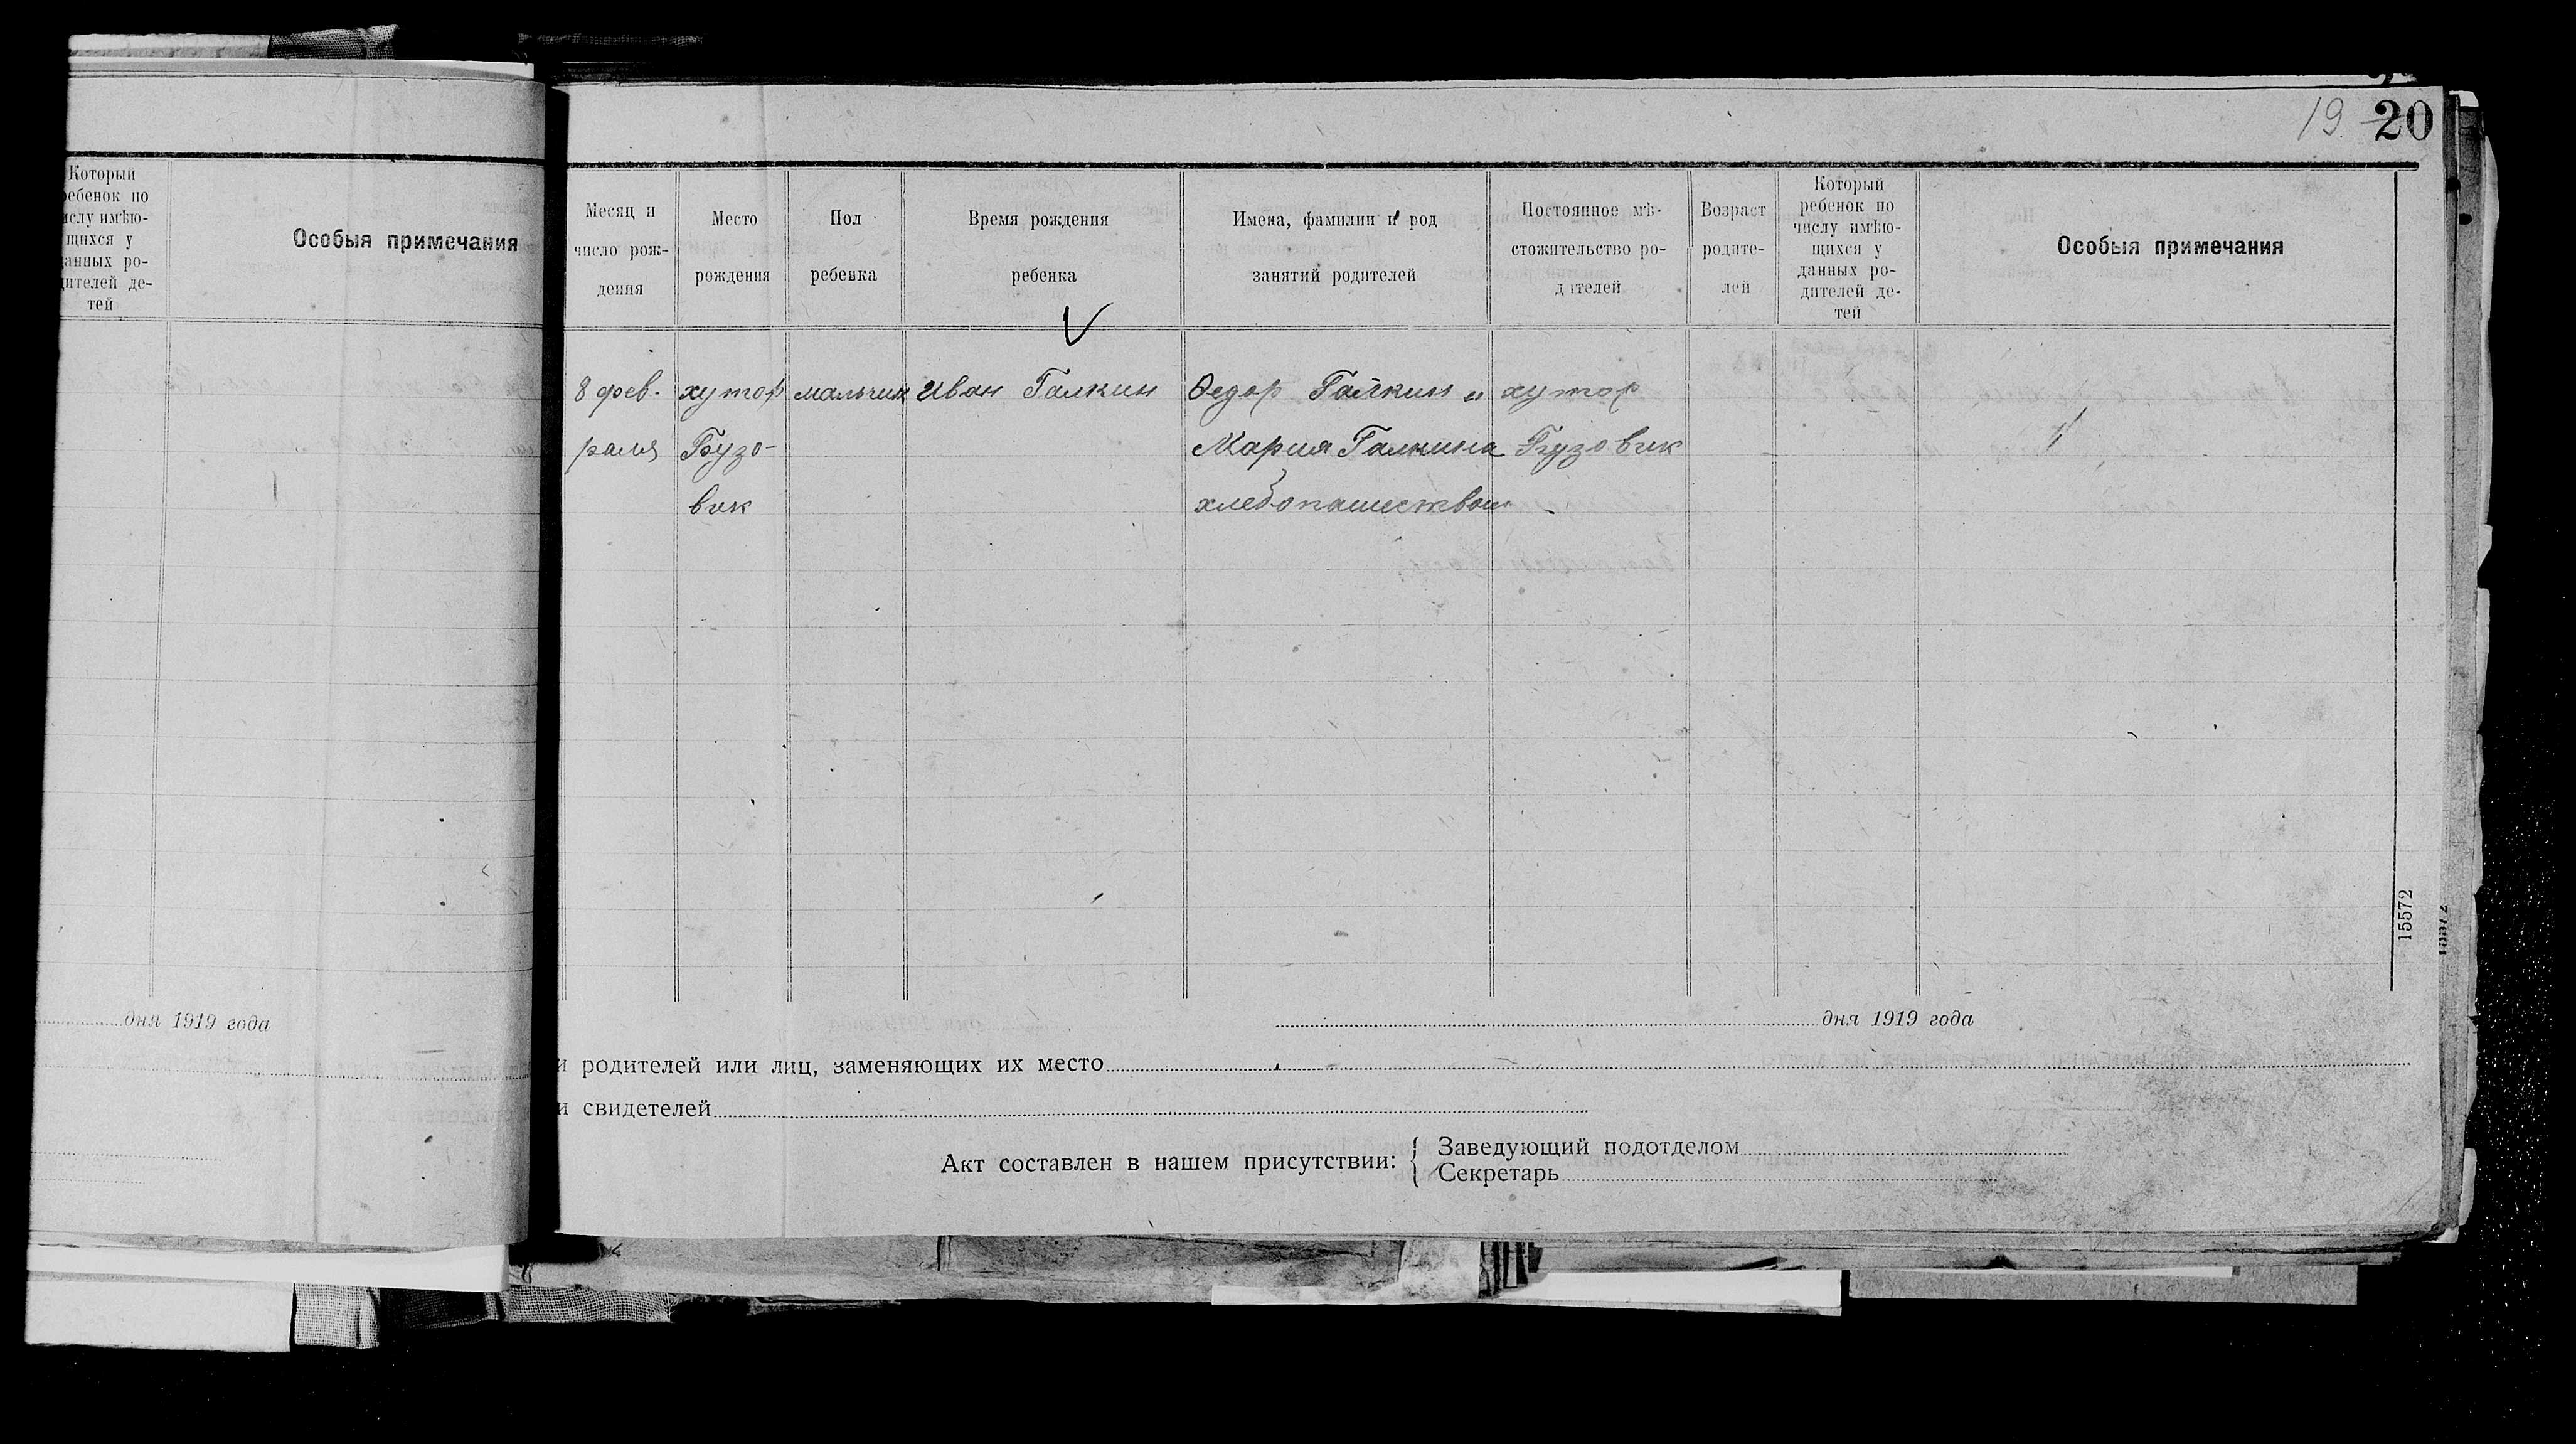 Который
ребенок по
числу имѣю-
щихся у
данных ро-
дителей де-
тей
Особыя примечания
дня 1919 года
19 20
Месяц и
число рож-
дения
Место
рождения
Пол
ребенка
Время рождения
ребенка
Имена, фамилии и род
занятий родителей
Постоянное мѣ-
стожительство ро-
дителей
Возраст
родите-
лей
Который
ребенок по
числу имѣю-
щихся у
данных ро-
дителей де-
тей
Особыя примечания
8 фев- хутор мальчик Иван Галкин Ѳедор Галкин и хутор
раля Бузо- Мария Галкина Бузовик
вик хлебопашеством
15572
дня 1919 года
и родителей или лиц, заменяющих их место
и свидетелей
Акт составлен в нашем присутствии: { Заведующий подотделом
Секретарь